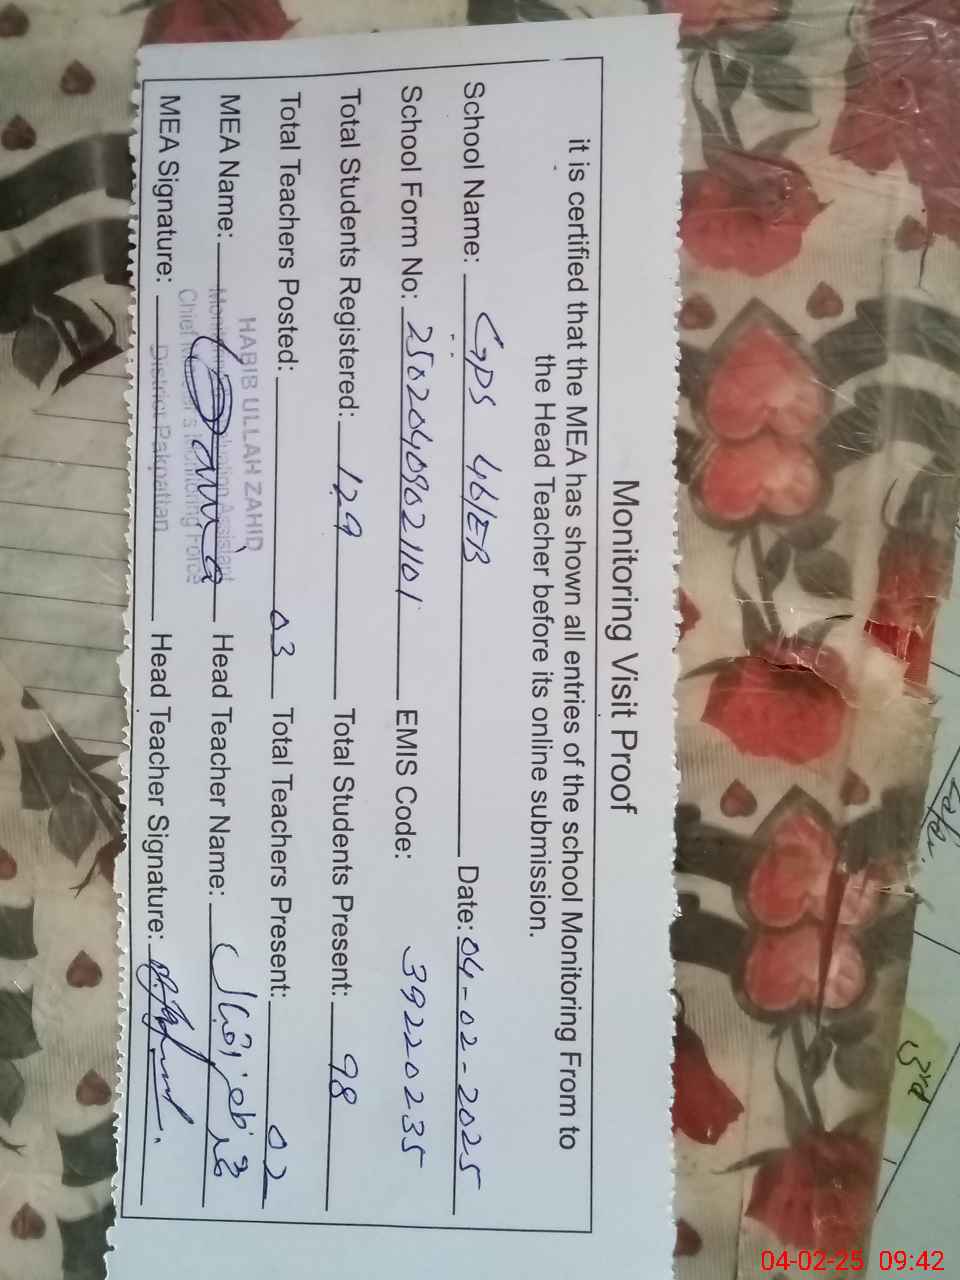 Monitoring Visit Proof
it is certified that the MEA has shown all entries of the school Monitoring From to
the Head Teacher before its online submission.
School Name: GPS 46/EB Date: 04-02-2025
School Form No: 25020409021101 EMIS Code: 39220235
Total Students Registered: 129 Total Students Present: 98
Total Teachers Posted: 03 Total Teachers Present: 02
HABIB ULLAH ZAHID
MEA Name: Head Teacher Name:
Monitoring Evaluation Assistant
Chief Minister's Monitoring Force
MEA Signature: District Pakpattan Head Teacher Signature:
3rd
04-02-25 09:42